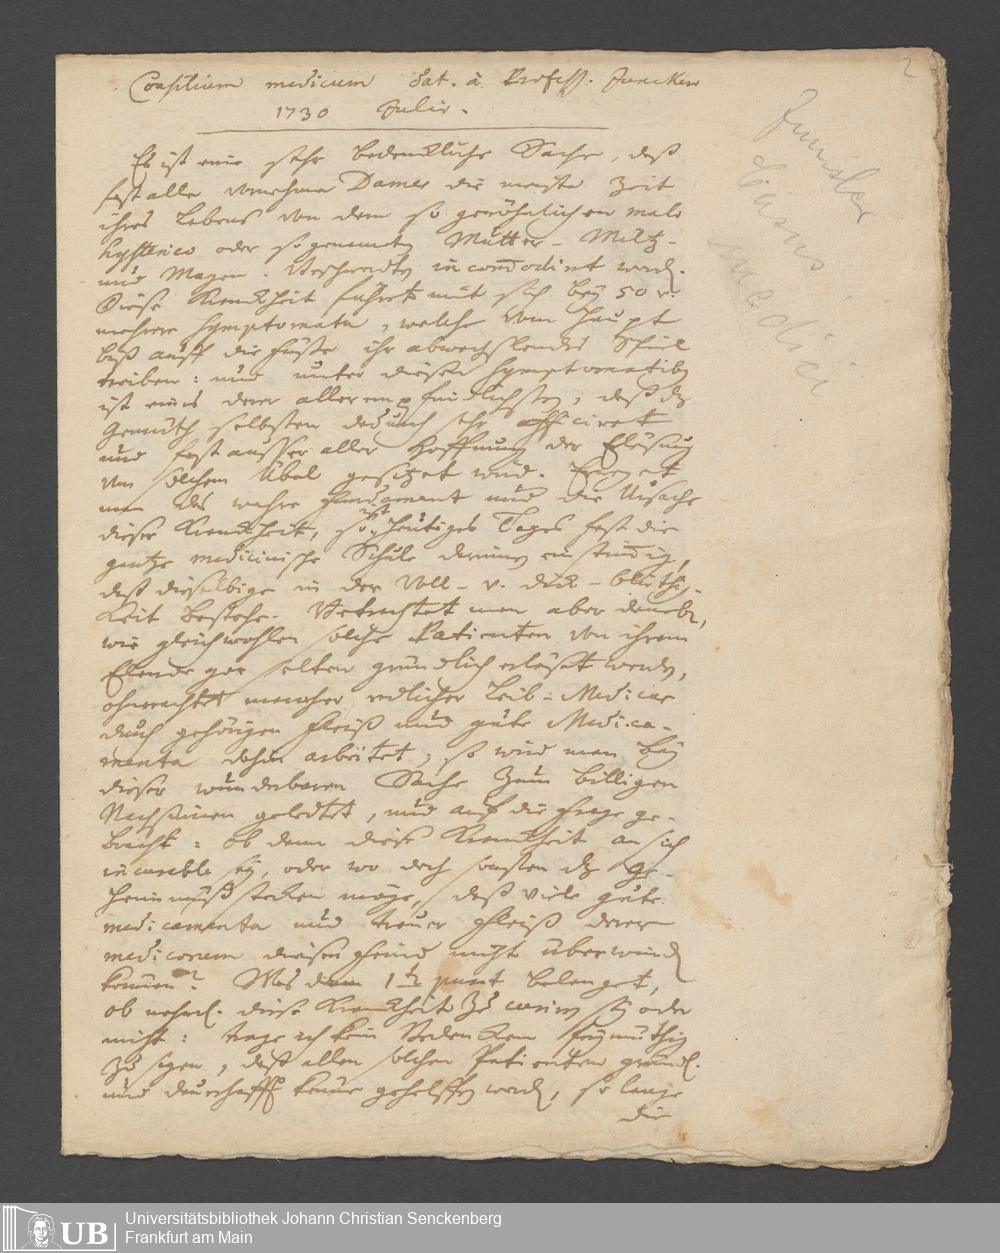 2
Consilium medicum dat. à Profess. Juncker
1730 Julio.
Juncker
Casus
medici
Es ist eine sehr bedenckliche Sache, daß
fast alle vornehme Dames die meiste Zeit
ihres Lebens von dem so gewöhnlichen malo
hysterico oder so genannten Mutter- Miltz-
und Magen-Beschwerden incommodirt werden.
Diese Kranckheit führet mit sich bey 50 v.
mehrere Symptomata, welche vom Haupt
biß auff die Füße ihr abwechslendes Spiel
treiben: und unter diesen Symptomatibus
ist eines derer allerempfindlichsten, daß das
Gemüth selbsten dadurch sehr afficiret
und fast ausser aller Hoffnung der Erlösung
von solchem Übel gesetzet wird. Erweget
man das wahre Fundament und die Ursache
dieser Kranckheit, so ist heutiges Tages fast die
gantze medicinische Schule darinnen einstimmig,
daß dieselbige in der Voll- v. dick-blüthig-
keit bestehe. Betrachtet man aber daneben,
wie gleichwohlen solche Patienten von ihrem
Elende gar selten gründlich erlöset werden,
ohnerachtet mancher redlicher Leib-Medicus
durch gehörigen Fleiß und gute Medica-
menta dahin arbeitet, so wird man bey
dieser wunderbaren Sache zum billigen
Nachsinnen geleitet, und auf die Frage ge-
bracht: ob denn diese Kranckheit an sich
incurable sey, oder wo doch sonsten das Ge-
heimnüß stecken möge, daß viele gute
medicamenta und treuer Fleiß derer
medicorum diesen Feind nicht überwinden
können? Was den 1ten punct belanget,
ob nehml. diese Kranckheit zu curiren sey oder
nicht: trage ich kein Bedencken freymüthig
zu sagen, daß allen solchen Patienten gründl.
und dauerhafft könne geholffen werden, so lange
die
Universitätsbibliothek Johann Christian Senckenberg
Frankfurt am Main
UB